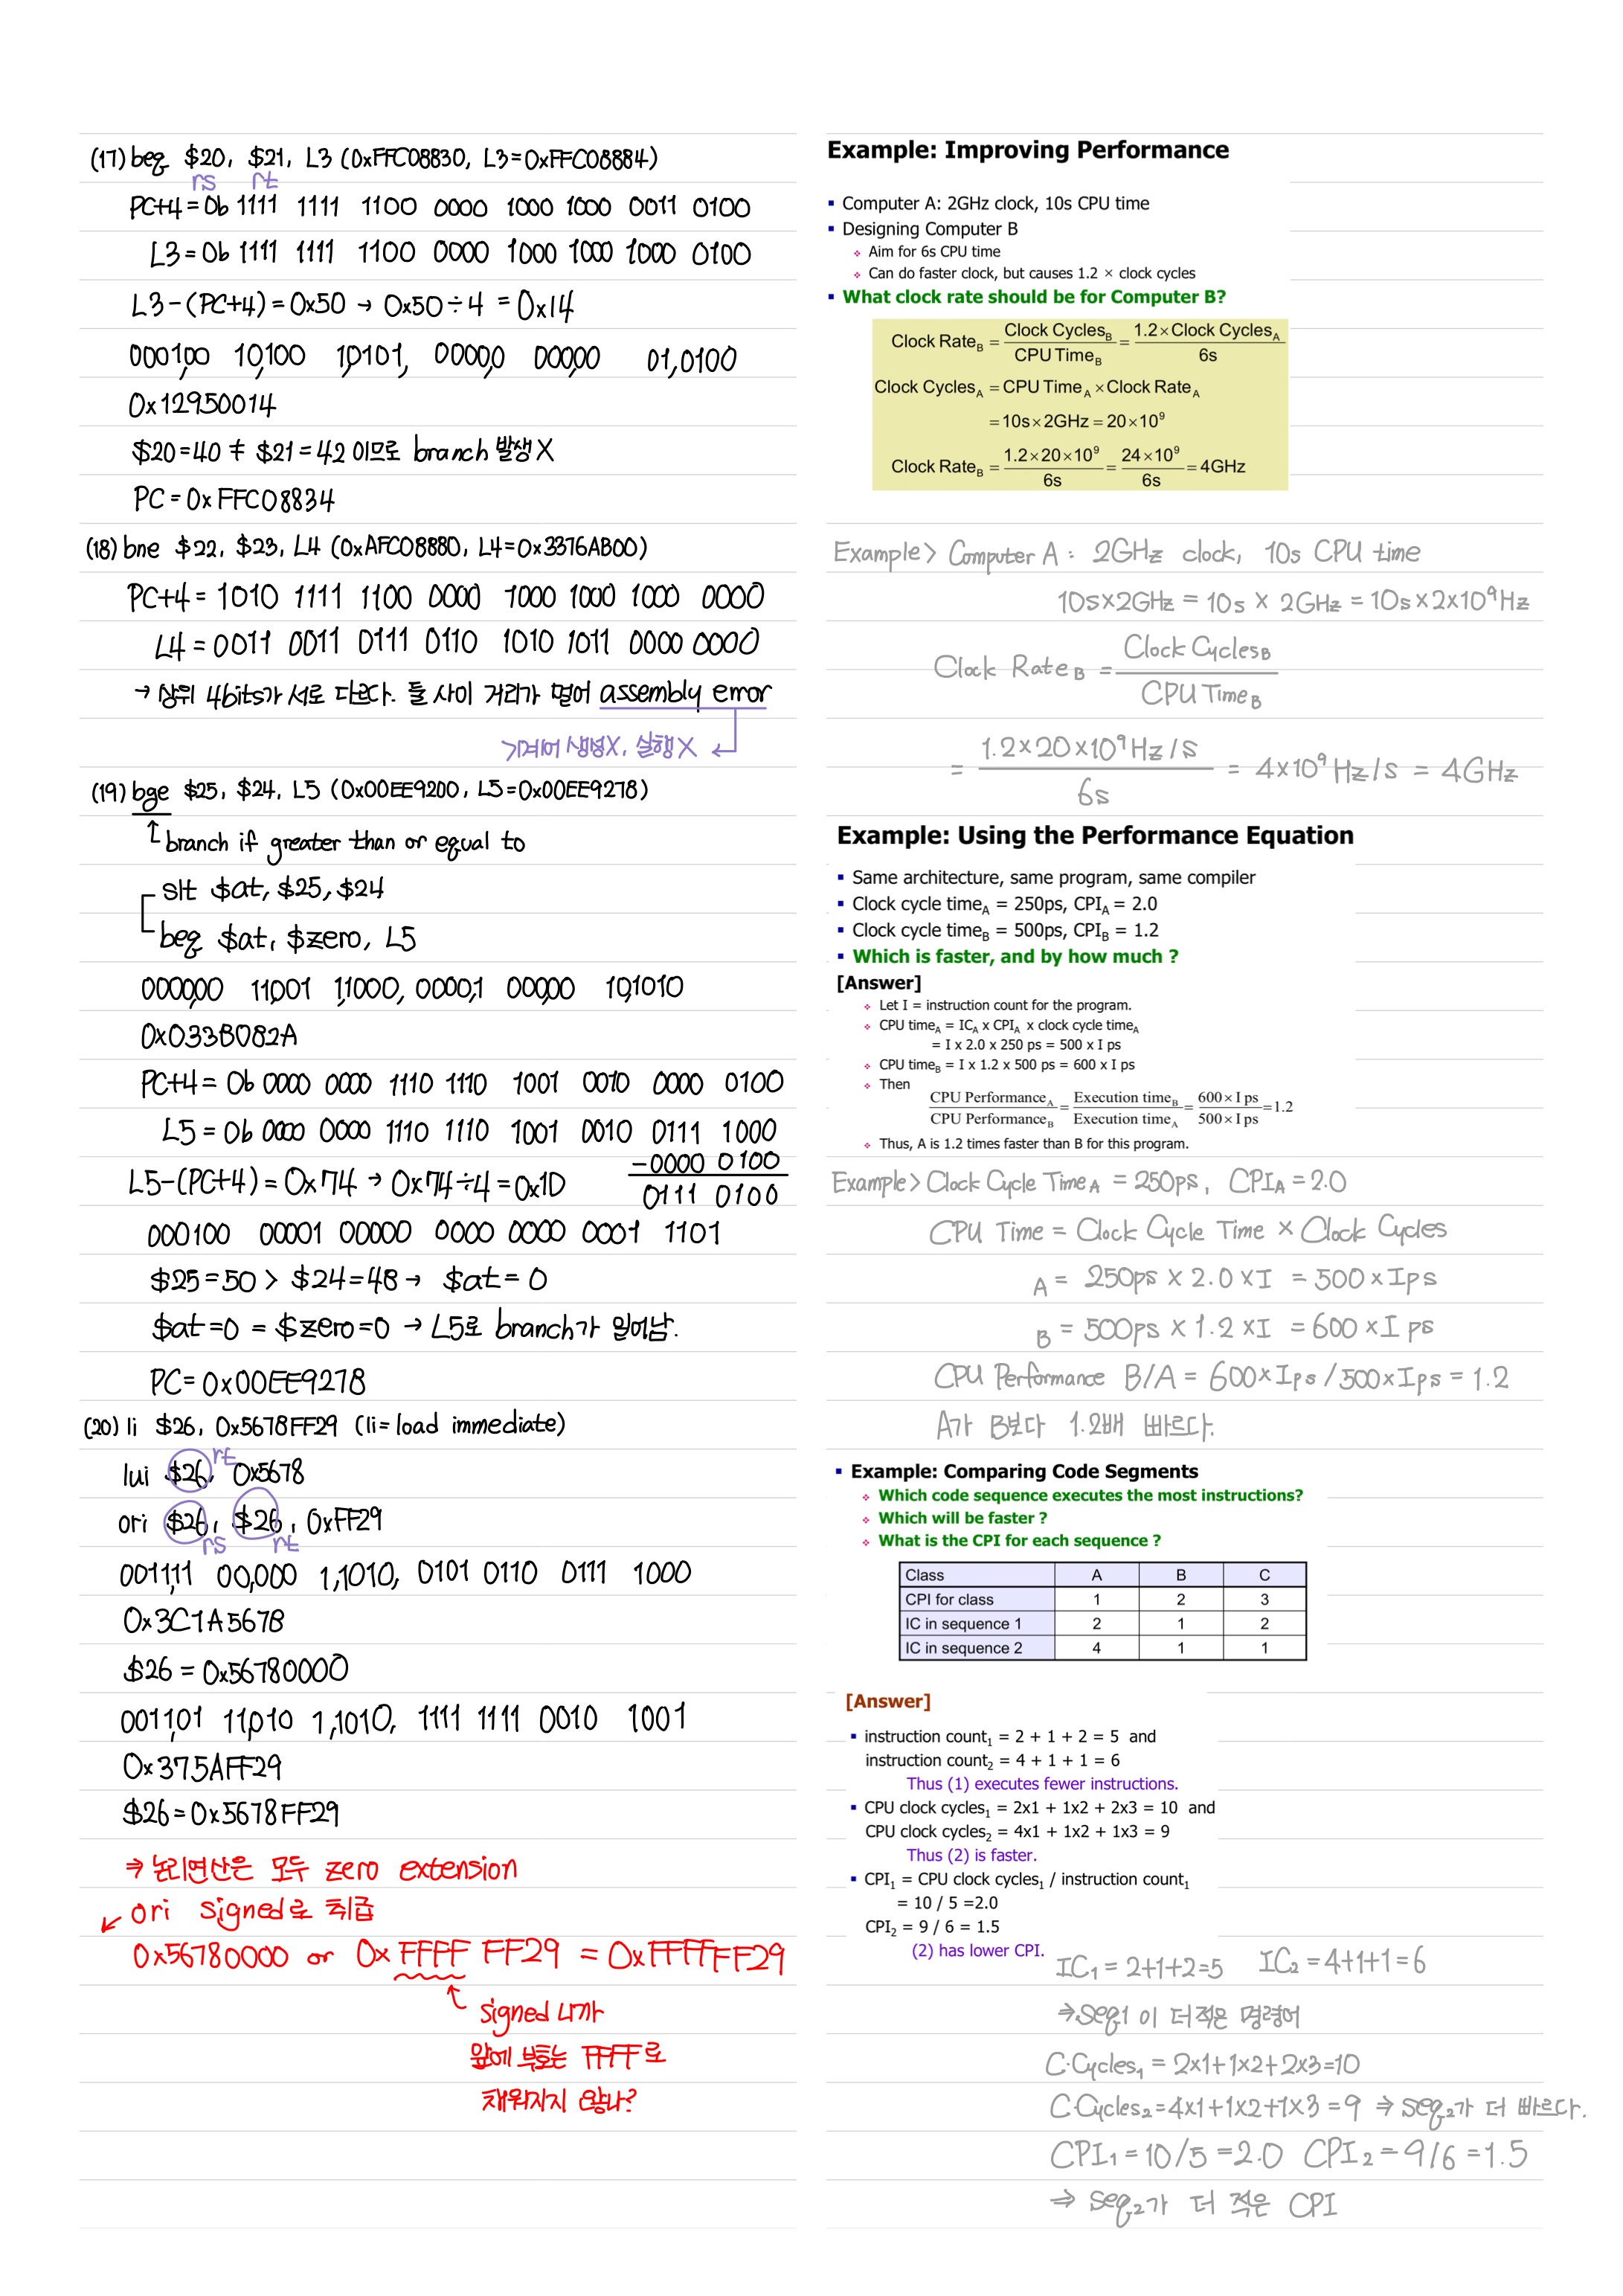 (17) beq $20, $21, L3 (0xFFC08830, L3=0xFFC08884)
rs rt
PC+4=0b 1111 1111 1100 0000 1000 1000 0011 0100
L3=0b 1111 1111 1100 0000 1000 1000 1000 0100
L3-(PC+4)=0x50 → 0x50÷4 =0x14
000100 10100 10101, 00000 00000 01,0100
0x12950014
$20=40 ≠ $21=42 이므로 branch 발생X
PC=0xFFC08834
(18) bne $22, $23, L4 (0xAFC08880, L4=0x3376AB00)
PC+4= 1010 1111 1100 0000 1000 1000 1000 0000
L4=0011 0011 0111 0110 1010 1011 0000 0000
→ 상위 4bits가 서로 다르다. 둘 사이 거리가 멀어 assembly error
기계어 생성X, 실행X
(19) bge $25, $24, L5 (0x00EE9200, L5=0x00EE9278)
branch if greater than or equal to
slt $at, $25, $24
beq $at, $zero, L5
000000 11001 11000, 00001 00000 101010
0x033B082A
PC+4= 0b 0000 0000 1110 1110 1001 0010 0000 0100
L5=0b 0000 0000 1110 1110 1001 0010 0111 1000
-0000 0100
L5-(PC+4)=0x74 → 0x74÷4=0x1D
0111 0100
000100 00001 00000 0000 0000 0001 1101
$25=50 > $24=48 → $at=0
$at=0 = $zero=0 → L5로 branch가 일어남.
PC=0x00EE9278
(20) li $26, 0x5678FF29 (li=load immediate)
rt
lui $26, 0x5678
ori $26, $26, 0xFF29
rs rt
001111 00,000 1,1010, 0101 0110 0111 1000
0x3C1A5678
$26=0x56780000
001101 11010 1,1010, 1111 1111 0010 1001
0x375AFF29
$26=0x5678FF29
⇒ 논리연산은 모두 zero extension
ori signed로 취급
0x56780000 or 0x FFFF FF29 = 0xFFFFFF29
signed 니까
앞에 부호는 FFFF로
채워지지 않나?
Example: Improving Performance
▪ Computer A: 2GHz clock, 10s CPU time
▪ Designing Computer B
❖ Aim for 6s CPU time
❖ Can do faster clock, but causes 1.2 × clock cycles
▪ What clock rate should be for Computer B?
Clock Rate_B = Clock Cycles_B / CPU Time_B = 1.2×Clock Cycles_A / 6s
Clock Cycles_A = CPU Time_A × Clock Rate_A
=10s×2GHz=20×10⁹
Clock Rate_B = 1.2×20×10⁹ / 6s = 24×10⁹ / 6s = 4GHz
Example> Computer A : 2GHz clock, 10s CPU time
10s×2GHz = 10s × 2GHz = 10s×2×10⁹Hz
Clock Rate B = Clock Cycles B / CPU Time B
= 1.2×20×10⁹Hz/s / 6s = 4×10⁹ Hz/s = 4GHz
Example: Using the Performance Equation
▪ Same architecture, same program, same compiler
▪ Clock cycle time_A = 250ps, CPI_A = 2.0
▪ Clock cycle time_B = 500ps, CPI_B = 1.2
▪ Which is faster, and by how much ?
[Answer]
❖ Let I = instruction count for the program.
❖ CPU time_A = IC_A x CPI_A x clock cycle time_A
= I x 2.0 x 250 ps = 500 x I ps
❖ CPU time_B = I x 1.2 x 500 ps = 600 x I ps
❖ Then
CPU Performance_A / CPU Performance_B = Execution time_B / Execution time_A = 600×I ps / 500×I ps =1.2
❖ Thus, A is 1.2 times faster than B for this program.
Example> Clock Cycle Time A = 250ps, CPI A = 2.0
CPU Time = Clock Cycle Time × Clock Cycles
A = 250ps × 2.0 × I = 500 × Ips
B = 500ps × 1.2 × I = 600 × I ps
CPU Performance B/A = 600×Ips/500×Ips = 1.2
A가 B보다 1.2배 빠르다.
▪ Example: Comparing Code Segments
❖ Which code sequence executes the most instructions?
❖ Which will be faster ?
❖ What is the CPI for each sequence ?
Class A B C
CPI for class 1 2 3
IC in sequence 1 2 1 2
IC in sequence 2 4 1 1
[Answer]
▪ instruction count₁ = 2 + 1 + 2 = 5 and
instruction count₂ = 4 + 1 + 1 = 6
Thus (1) executes fewer instructions.
▪ CPU clock cycles₁ = 2x1 + 1x2 + 2x3 = 10 and
CPU clock cycles₂ = 4x1 + 1x2 + 1x3 = 9
Thus (2) is faster.
▪ CPI₁ = CPU clock cycles₁ / instruction count₁
= 10 / 5 =2.0
CPI₂ = 9 / 6 = 1.5
(2) has lower CPI.
IC₁ = 2+1+2=5 IC₂ = 4+1+1=6
⇒seq1 이 더 적은 명령어
C·Cycles₁ = 2×1+1×2+2×3=10
C·Cycles₂=4×1+1×2+1×3=9 ⇒ seq₂가 더 빠르다.
CPI₁=10/5=2.0 CPI₂=9/6=1.5
⇒ seq₂가 더 적은 CPI